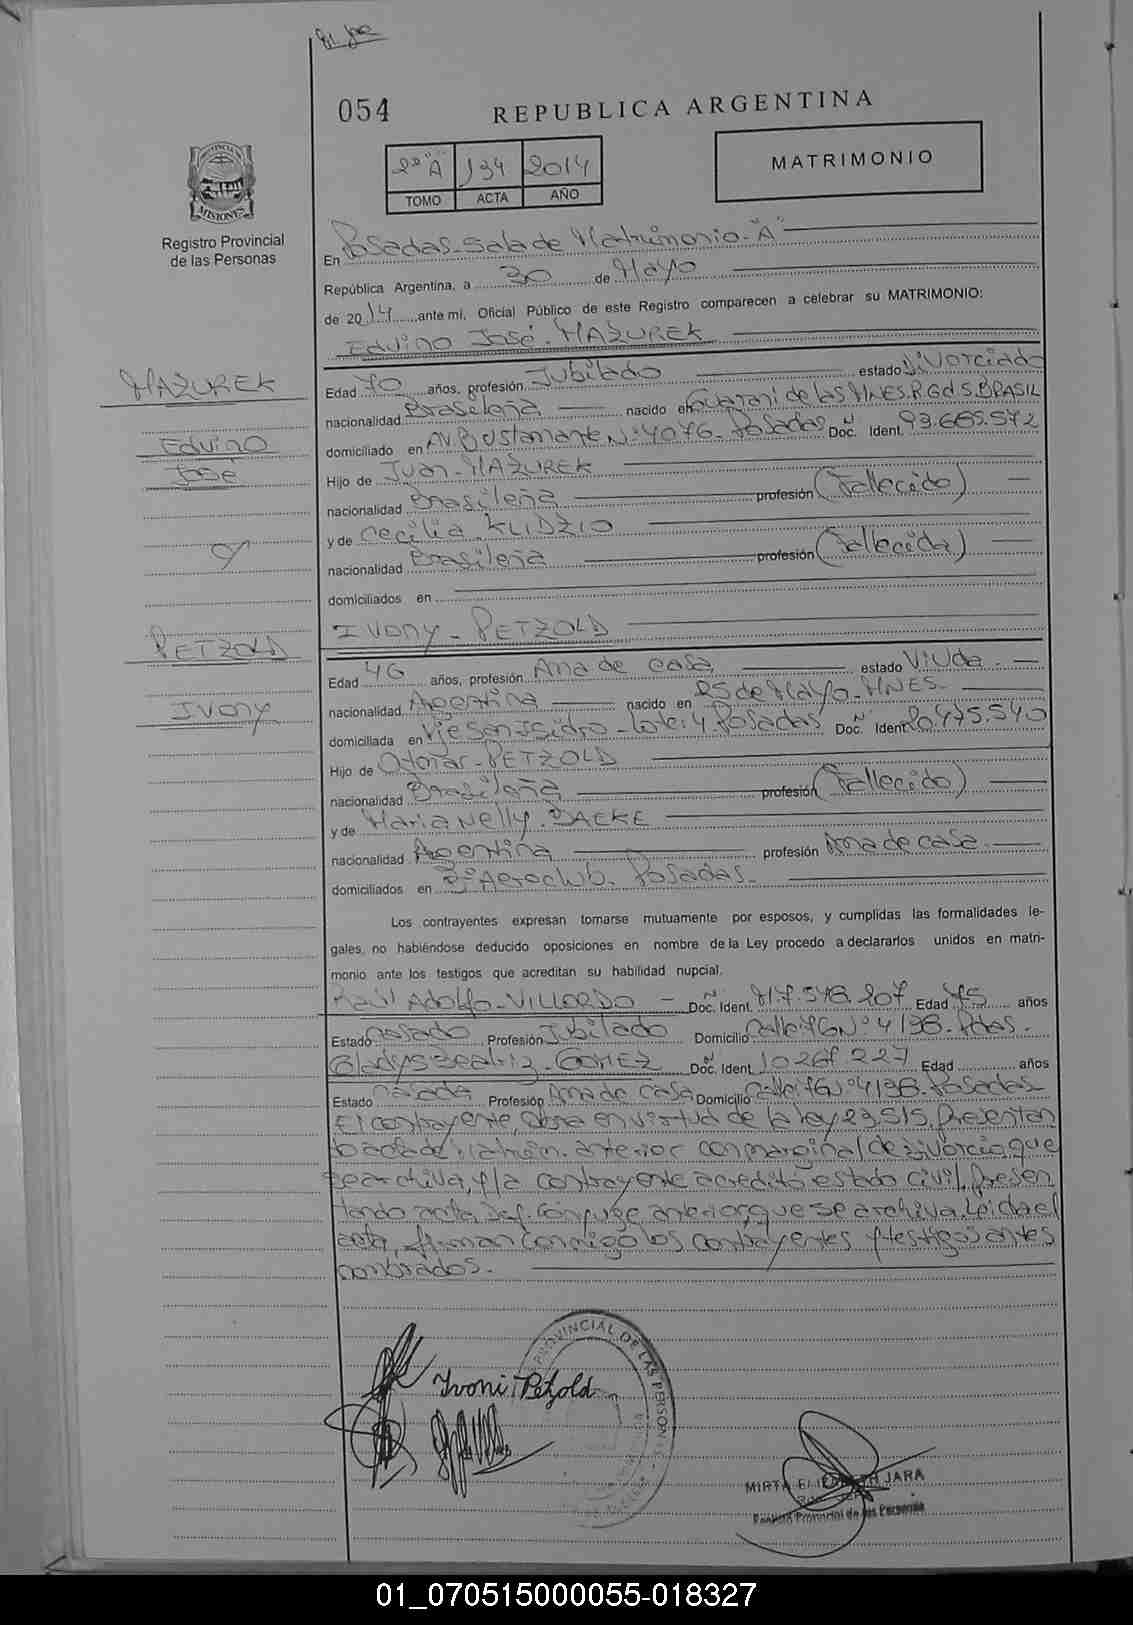 054
REPUBLICA ARGENTINA
2º "A" 134 2014
TOMO ACTA AÑO
MATRIMONIO
PROVINCIA
MISIONES
Registro Provincial
de las Personas
En Posadas-Sala de Matrimonio-"A"
República Argentina, a 30 de Mayo
de 2014 ante mí, Oficial Público de este Registro comparecen a celebrar su MATRIMONIO:
Edvino José. MAZUREK
MAZUREK
Edvino
José
Edad 70 años, profesión Jubilado estado Divorciado
nacionalidad Brasileña nacido en Guarani de las MNES.R.GdS.BRASIL
domiciliado en AV.Bustamante Nº 4076-Posadas Doc. Ident. 93.665.572
Hijo de Juan-MAZUREK
nacionalidad Brasileña profesión (Fallecido)
y de Cecilia. KLIDZIO
nacionalidad Brasileña profesión (Fallecida)
domiciliados en
IVONY-PETZOLD
PETZOLD
Ivony
Edad 46 años, profesión Ama de casa estado Viuda.
nacionalidad Argentina nacido en 25 de Mayo-MNES.
domiciliada en San Isidro-Lote:4.Posadas Doc. Ident. 20.475.540
Hijo de Otomar-PETZOLD
nacionalidad Brasileña profesión (Fallecido)
y de Maria Nelly.
nacionalidad Argentina profesión Ama de casa.
domiciliados en Bº Aeroclub. Posadas.
Los contrayentes expresan tomarse mutuamente por esposos, y cumplidas las formalidades le-
gales, no habiéndose deducido oposiciones en nombre de la Ley procedo a declararlos unidos en matri-
monio ante los testigos que acreditan su habilidad nupcial.
Raúl Adolfo-VILLORDO - Doc. Ident. M7.548.207 Edad 75 años
Estado Casado Profesión Jubilado Domicilio Calle Nº 4196-Pdas.
Gladys Beatriz-GOMEZ Doc. Ident. Edad años
Estado Casada Profesión Ama de Casa Domicilio Calle Nº 4196.Posadas
El contrayente, en virtud de la ley 23.515, Presentan
do acta de anterior con marginal de divorcio, que
se archiva, y la contrayente acreditó estado civil, Presen
tando acta Def. Cónyuge anterior, que se archiva. Leída el
acta, firman conmigo los contrayentes y testigos antes
nombrados.
Ivoni Petzold
PROVINCIAL DE LAS PERSONAS
MIRTA JARA
Registro Provincial de las Personas
01_070515000055-018327